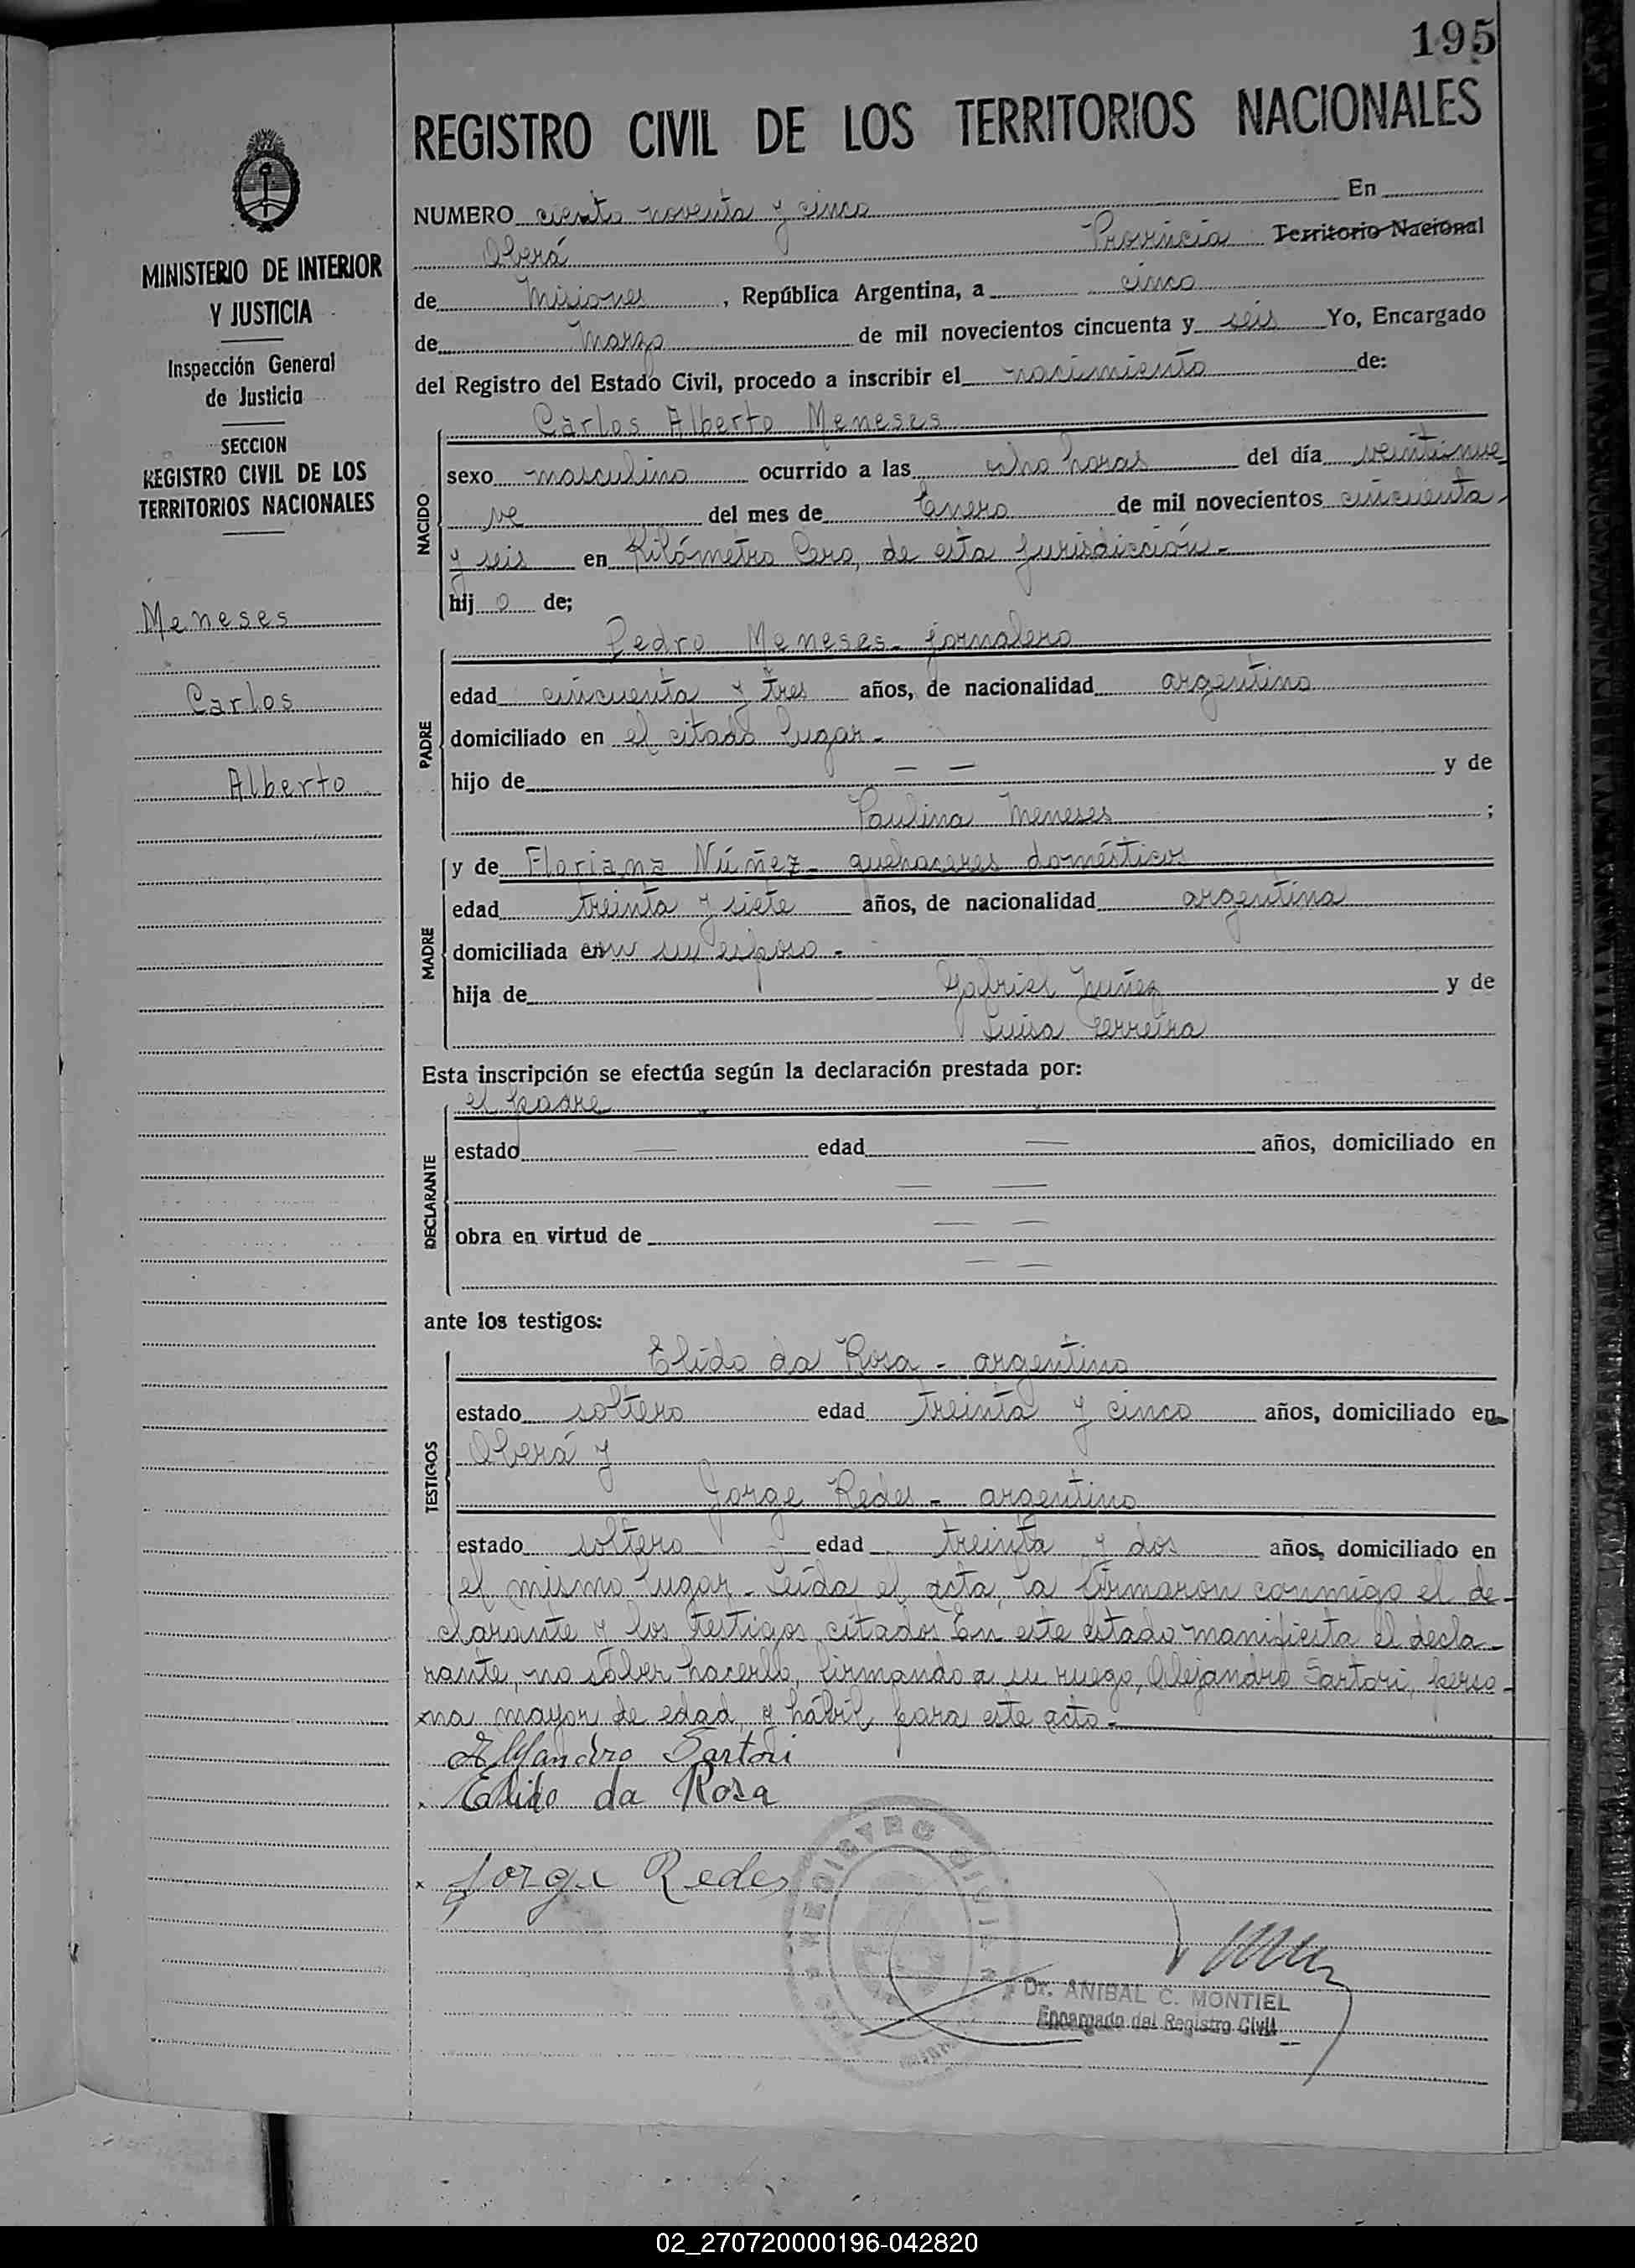 195
REGISTRO CIVIL DE LOS TERRITORIOS NACIONALES
MINISTERIO DE INTERIOR
Y JUSTICIA
Inspección General
de Justicia
SECCION
REGISTRO CIVIL DE LOS
TERRITORIOS NACIONALES
Meneses
Carlos
Alberto
NUMERO ciento noventa y cinco En
Oberá Provincia Territorio Nacional
de Misiones, República Argentina, a cinco
de Marzo de mil novecientos cincuenta y seis Yo, Encargado
del Registro del Estado Civil, procedo a inscribir el nacimiento de:
NACIDO
Carlos Alberto Meneses
sexo masculino ocurrido a las ocho horas del día veintinue
ve del mes de Enero de mil novecientos cincuenta
y seis en Kilómetro Cero, de esta jurisdicción.-
hij o de;
PADRE
Pedro Meneses- jornalero
edad cincuenta y tres años, de nacionalidad argentino
domiciliado en el citado lugar.-
hijo de — — y de
Paulina Meneses ;
MADRE
y de Floriana Núñez- quehaceres domésticos
edad treinta y siete años, de nacionalidad argentina
domiciliada con su esposo.-
hija de Gabriel Nuñez y de
Luisa Ferreira
Esta inscripción se efectúa según la declaración prestada por:
DECLARANTE
el padre
estado — edad — años, domiciliado en
— —
obra en virtud de — —
— —
ante los testigos:
TESTIGOS
Elido da Rosa - argentino
estado soltero edad treinta y cinco años, domiciliado en
Oberá y
Jorge Redes - argentino
estado soltero edad treinta y dos años, domiciliado en
el mismo lugar.- Leída el acta, la firmaron conmigo el de-
clarante y los testigos citados En este estado manifiesta el decla-
rante, no saber hacerlo, firmando a su ruego, Alejandro Sartori, perso-
na mayor de edad, y hábil para este acto.-
Alejandro Sartori
Elido da Rosa
x Jorge Redes
REGISTRO CIVIL
Dr. ANIBAL C. MONTIEL
Encargado del Registro Civil
02_270720000196-042820